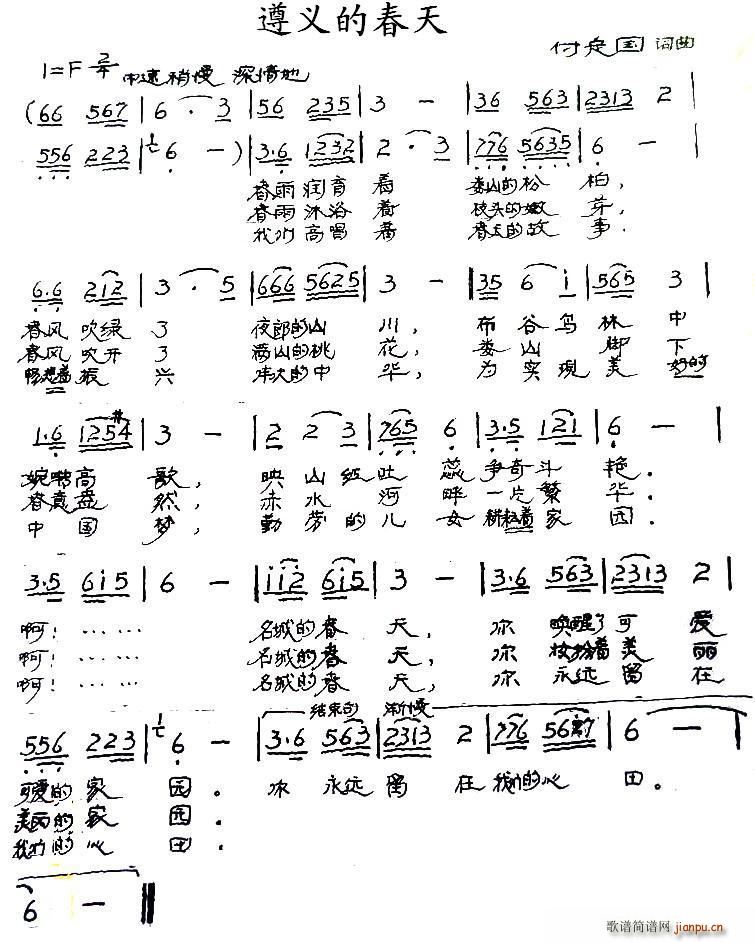 遵义的春天
付定国 词曲
1=F 2/4 中速稍慢 深情地
(66 567 | 6 · 3 | 56 235 | 3 － | 36 563 | 2313 2 |
556 223 | 6 － ) | 3·6 1232 | 2 · 3 | 776 5635 | 6 － |
春雨润育着 娄山的松柏,
春雨沐浴着 枝头的嫩芽,
我们高唱着 春天的故事.
6·6 212 | 3 · 5 | 666 5625 | 3 － | 35 6 i | 565 3 |
春风吹绿了 夜郎的山川, 布谷鸟林中
春风吹开了 满山的桃花, 娄山脚下
畅想着振兴 伟大的中华, 为实现美好的
1·6 1254 | 3 － | 2 2 3 | 765 6 | 3·5 121 | 6 － |
婉啭高歌, 映山红吐蕊争奇斗艳.
春意盎然, 赤水河畔一片繁华.
中国梦, 勤劳的儿女耕耘着家园.
3·5 6i5 | 6 － | ii2 6i5 | 3 － | 3·6 563 | 2313 2 |
啊! …… 名城的春天, 你唤醒了可爱
啊! …… 名城的春天, 你妆扮着美丽
啊! …… 名城的春天, 你永远留在
结束句 渐慢
556 223 | 6 － | 3·6 563 | 2313 2 | 776 567 | 6 － |
可爱的家园. 你永远留在我们的心田.
美丽的家园.
我们的心田.
6 － ‖
歌谱简谱网
jianpu.cn